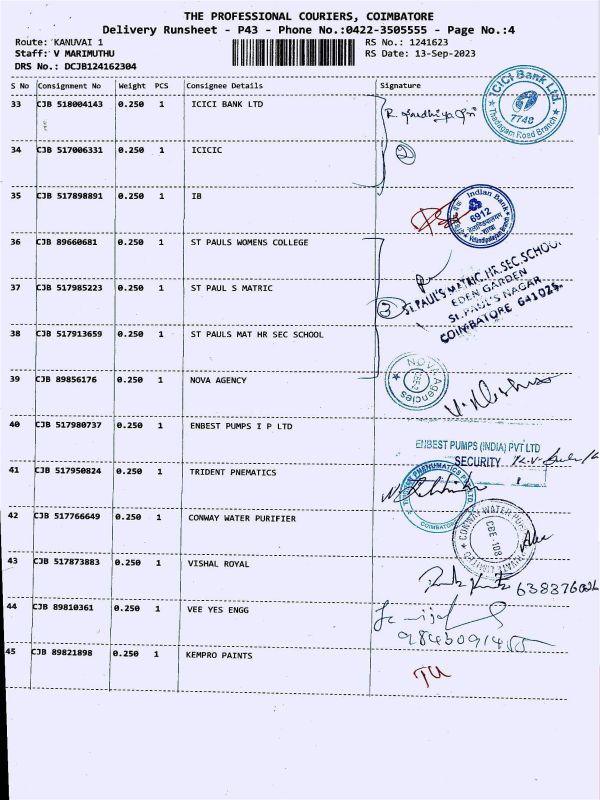 THE PROFESSIONAL COURIERS, COIMBATORE
Delivery Runsheet - P43 - Phone No.:0422-3505555 - Page No.:4
Route: KANUVAI 1 RS No.: 1241623
Staff: V MARIMUTHU RS Date: 13-Sep-2023
DRS No.: DCJB124162304
S No Consignment No Weight PCS Consignee Details Signature
33 CJB 518004143 0.250 1 ICICI BANK LTD
ICICI Bank Ltd.
7748
Thadagam Road Branch
34 CJB 517006331 0.250 1 ICICIC
2
35 CJB 517898891 0.250 1 IB
Indian Bank
6912
36 CJB 89660681 0.250 1 ST PAULS WOMENS COLLEGE
37 CJB 517985223 0.250 1 ST PAUL S MATRIC
3
ST.PAUL'S MATRIC.HR.SEC.SCHOOL
EDEN GARDEN
ST.PAUL'S NAGAR
COIMBATORE 641025.
38 CJB 517913659 0.250 1 ST PAULS MAT HR SEC SCHOOL
39 CJB 89856176 0.250 1 NOVA AGENCY
NOVA Agencies
40 CJB 517980737 0.250 1 ENBEST PUMPS I P LTD
ENBEST PUMPS (INDIA) PVT LTD
SECURITY
41 CJB 517950824 0.250 1 TRIDENT PNEMATICS
COIMBATORE
42 CJB 517766649 0.250 1 CONWAY WATER PURIFIER
CONWAY WATER
CBE-108
43 CJB 517873883 0.250 1 VISHAL ROYAL
44 CJB 89810361 0.250 1 VEE YES ENGG
45 CJB 89821898 0.250 1 KEMPRO PAINTS